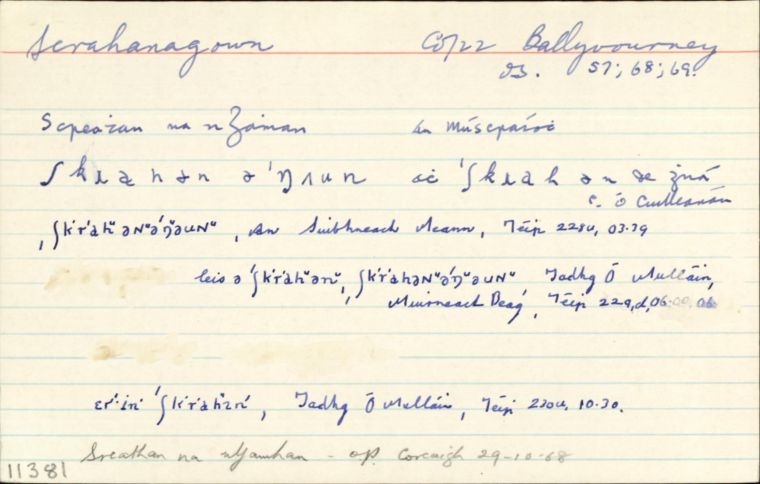 Scrahanagown Co/22 Ballyvourney
OS. 57; 68; 69.
Screaṫan na nGaḃan an Múscraoi
ʃkɹæhən ə'ŋʌun aċ 'ʃkɹæhən æ ġná
C. Ó Cuilleanáin
ˌʃk'r'ah ən ə'ŋ əun, An Suibhneach Meann, Téip 228u, 03.39
leis ə'ʃk'r'ah ən, ʃk'r'ahən ə'ŋ əun Tadhg Ó Mulláin,
Muirneach Beag, Téip 229,d,06.00,06
er'·in' 'ʃk'r'ah in', Tadhg Ó Mulláin, Téip 230u, 10.30.
Sreathan na nGamhan - op. Corcaigh 29-10-68
11381